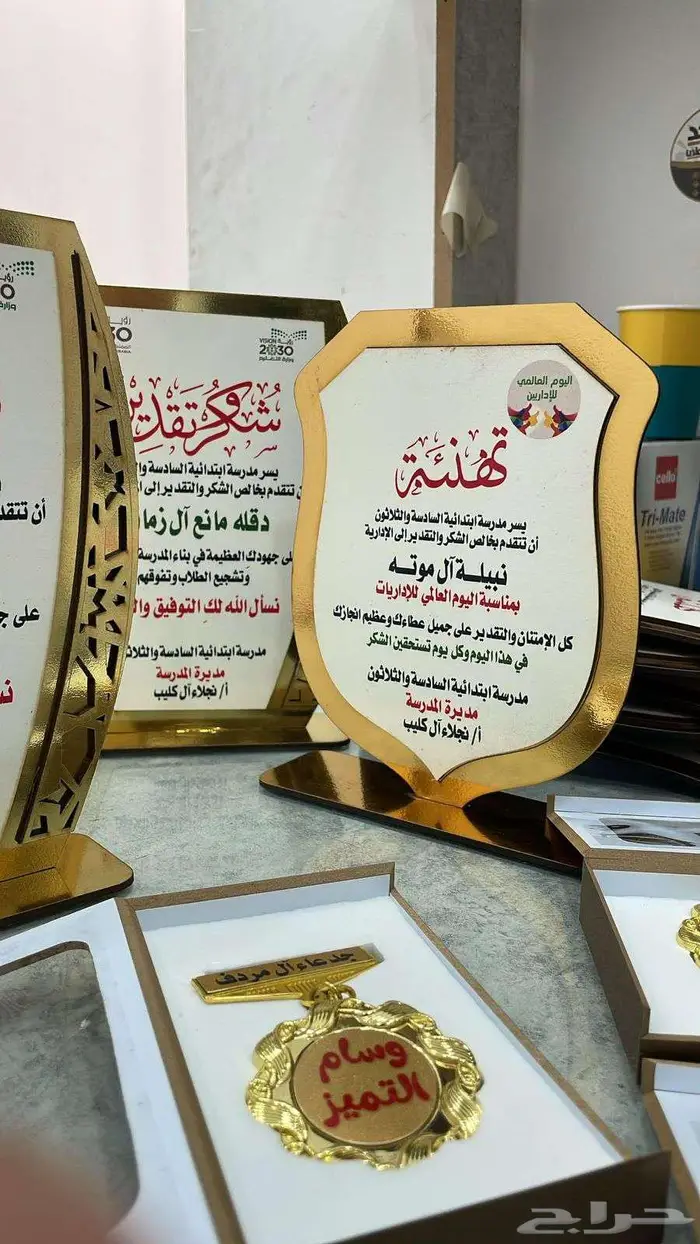 اليوم العالمي
للإداريين
تهنئة
يسر مدرسة ابتدائية السادسة والثلاثون
أن تتقدم بخالص الشكر والتقدير إلى الإدارية
نبيلة آل موته
بمناسبة اليوم العالمي للإداريات
كل الإمتنان والتقدير على جميل عطاءك وعظيم انجازك
في هذا اليوم وكل يوم تستحقين الشكر
مدرسة ابتدائية السادسة والثلاثون
مديرة المدرسة
أ/ نجلاء آل كليب
رؤية VISION
2030
وزارة التعليم
شكر وتقدير
يسر مدرسة ابتدائية السادسة
تتقدم بخالص الشكر والتقدير إلى
دقله مانع آل
جهودك العظيمة في بناء المدرسة
وتشجيع الطلاب وتفوقهم
نسأل الله لك التوفيق
مدرسة ابتدائية السادسة
مديرة المدرسة
أ/ نجلاء آل كليب
أن
على
جدعاء آل مردف
وسام
التميز
cello
Tri-Mate
حراج